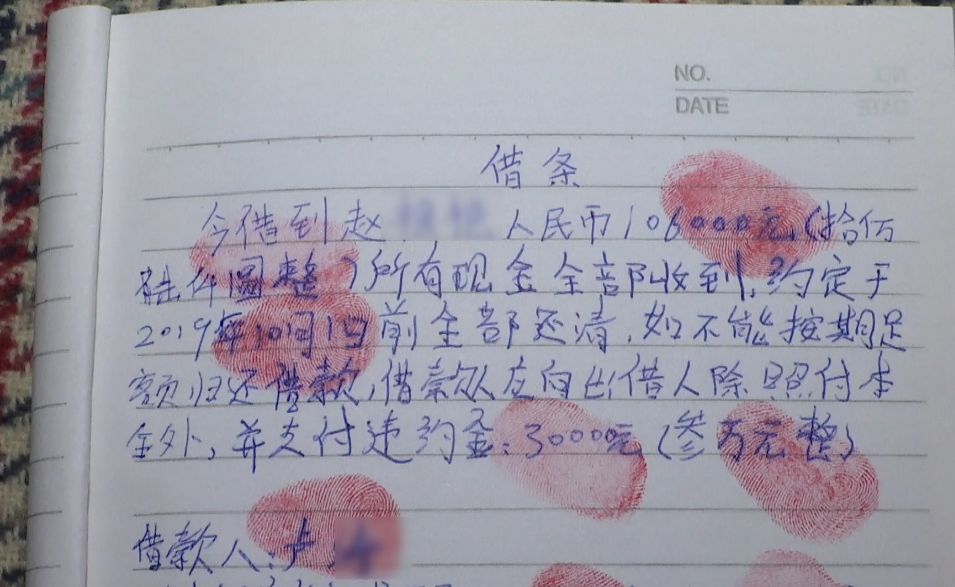 NO.
DATE
借条
今借到赵 人民币106000元(拾万
陆仟圆整)所有现金全部收到,约定于
2019年10月1日前全部还清,如不能按期足
额归还借款,借款人应向出借人除照付本
金外,并支付违约金:30000元(叁万元整)
借款人:卢